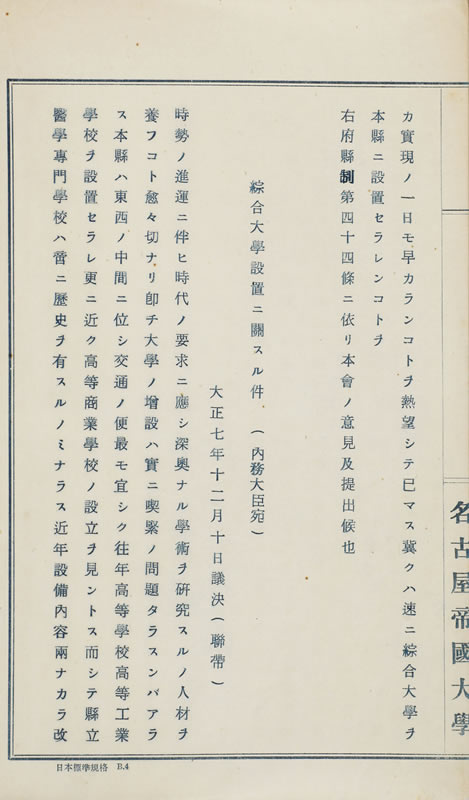 名古屋帝國大學
カ實現ノ一日モ早カランコトヲ熱望シテ已マス冀クハ速ニ綜合大學ヲ
本縣ニ設置セラレンコトヲ
右府縣制第四十四條ニ依リ本會ノ意見及提出候也
綜合大學設置ニ關スル件 (內務大臣宛)
大正七年十二月十日議決(聯帶)
時勢ノ進運ニ伴ヒ時代ノ要求ニ應シ深奧ナル學術ヲ硏究スルノ人材ヲ
養フコト愈々切ナリ卽チ大學ノ增設ハ實ニ喫緊ノ問題タラスンバアラ
ス本縣ハ東西ノ中間ニ位シ交通ノ便最モ宜シク往年高等學校高等工業
學校ヲ設置セラレ更ニ近ク高等商業學校ノ設立ヲ見ントス而シテ縣立
醫學專門學校ハ啻ニ歷史ヲ有スルノミナラス近年設備內容兩ナカラ改
日本標準規格 B.4